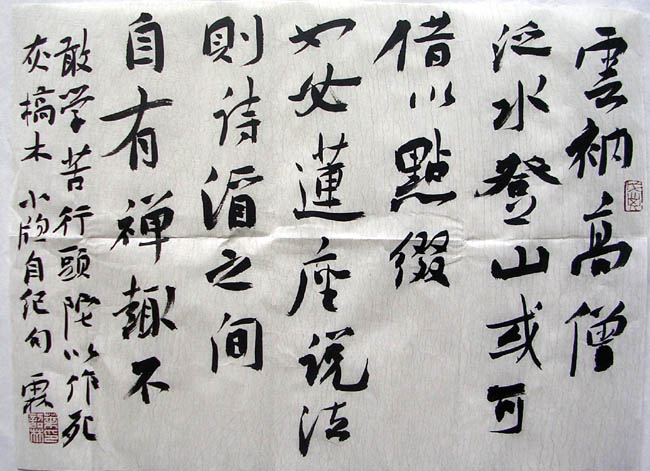 雲衲高僧
泛水登山或可
借以點綴
如必蓮座说法
則诗酒之间
自有禅趣不
敢学苦行頭陀以作死
灰槁木 小窗自纪句 霖